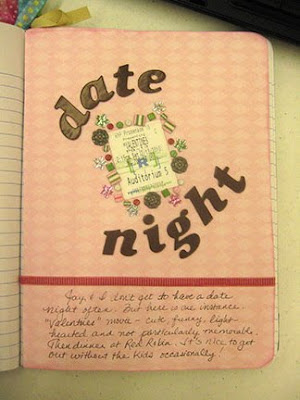 date
Auditorium 5
night
Jay & I don't get to have a date
night often. But here is one instance.
"Valentines" movie - cute, funny, light-
hearted and not particularly memorable.
Then dinner at Red Robin. It's nice to get
out without the kids occasionally!